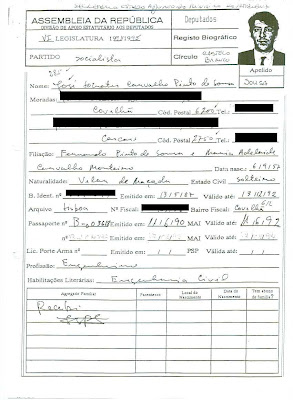 ASSEMBLEIA DA REPÚBLICA
DIVISÃO DE APOIO ESTATUTÁRIO AOS DEPUTADOS
Deputados
VI LEGISLATURA 1991/1995
Registo Biográfico
PARTIDO socialista
Círculo CASTELO BRANCO
Apelido
Nome: José Carvalho Pinto de Sousa
Sousa
Moradas:
Covilhã Cód. Postal 6200 Tel.:
Cascais Cód. Postal 2750 Tel.:
Filiação: Fernando Pinto de Sousa e Maria Adelaide
Carvalho Monteiro Data nasc.: 6/9/57
Naturalidade: Vilar de Maçada Estado Civil solteiro
B. Ident. nº Emitido em: Válido até: 13/12/92
Arquivo Lisboa Nº Fiscal: Bairro Fiscal: Covilhã
Passaporte nº Emitido em: MAI Válido até:
nº Emitido em: MAI Válido até:
Lic. Porte Arma nº Emitido em: PSP Válido até:
Profissão: Engenheiro
Habilitações Literárias: Engenharia Civil
Agregado Familiar
Parentesco
Local do Nascimento
Data do Nascimento
Tem abono de família?
Recebi